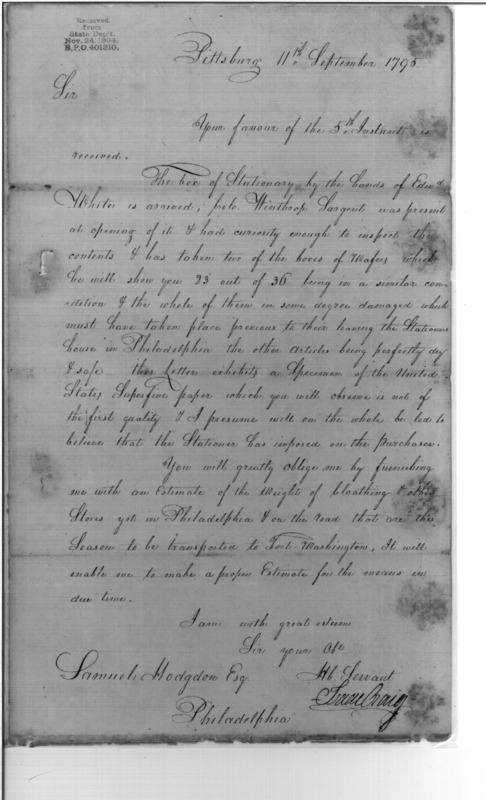 Received
from
State Dep't.
Nov. 24, 1894.
R.P.O. 401310.
Pittsburg 11th September 1795
Sir
Your favour of the 5th Instant is
received.
The box of Stationary by the hands of Edwd.
White is arrived, Colo. Winthrop Sargent was present
at opening of it & had curiosity enough to inspect the
contents & has taken two of the boxes of Wafers which
he will show you 23 out of 36 being in a similar con-
dition & the whole of them in some degree damaged which
must have taken place previous to their leaving the Stationers
house in Philadelphia the other articles being perfectly dry
& safe this Letter exhibits a Specimen of the United
States Superfine paper which you will observe is not of
the first quality & I presume will on the whole be led to
believe that the Stationer has imposed on the Purchaser.
You will greatly oblige me by furnishing
me with an Estimate of the Weight of Cloathing & other
Stores yet in Philadelphia & on the road that are this
Season to be transported to Fort Washington, It will
enable me to make a proper Estimate for the means in
due time.
I am with great esteem
Sir your Obt
Hb Servant
Samuel Hodgdon Esq
Isaac Craig
Philadelphia